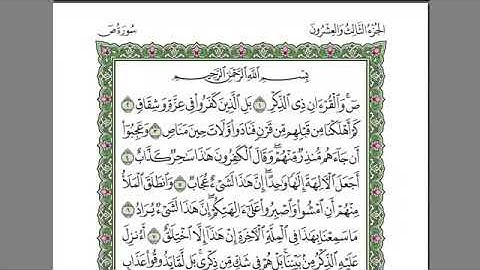 الجزء الثالث والعشرون
سورة ص
بِسْمِ ٱللَّهِ ٱلرَّحْمَٰنِ ٱلرَّحِيمِ
صٓ ۚ وَٱلْقُرْءَانِ ذِى ٱلذِّكْرِ ١ بَلِ ٱلَّذِينَ كَفَرُوا۟ فِى عِزَّةٍ وَشِقَاقٍ ٢
كَمْ أَهْلَكْنَا مِن قَبْلِهِم مِّن قَرْنٍ فَنَادَوا۟ وَّلَاتَ حِينَ مَنَاصٍ ٣ وَعَجِبُوٓا۟
أَن جَآءَهُم مُّنذِرٌ مِّنْهُمْ ۖ وَقَالَ ٱلْكَٰفِرُونَ هَٰذَا سَٰحِرٌ كَذَّابٌ ٤
أَجَعَلَ ٱلْـَٔالِهَةَ إِلَٰهًا وَٰحِدًا ۖ إِنَّ هَٰذَا لَشَىْءٌ عُجَابٌ ٥ وَٱنطَلَقَ ٱلْمَلَأُ
مِنْهُمْ أَنِ ٱمْشُوا۟ وَٱصْبِرُوا۟ عَلَىٰٓ ءَالِهَتِكُمْ ۖ إِنَّ هَٰذَا لَشَىْءٌ يُرَادُ ٦
مَا سَمِعْنَا بِهَٰذَا فِى ٱلْمِلَّةِ ٱلْـَٔاخِرَةِ إِنْ هَٰذَآ إِلَّا ٱخْتِلَٰقٌ ٧ أَءُنزِلَ
عَلَيْهِ ٱلذِّكْرُ مِنۢ بَيْنِنَا ۚ بَلْ هُمْ فِى شَكٍّ مِّن ذِكْرِى ۖ بَل لَّمَّا يَذُوقُوا۟ عَذَابِ